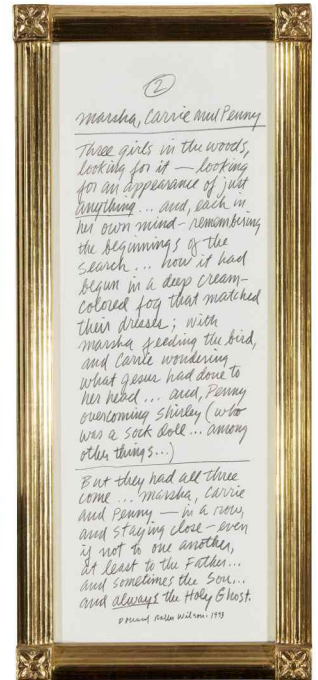 2
Marsha, Carrie and Penny
Three girls in the woods,
looking for it — looking
for an appearance of just
anything ... and, each in
her own mind - remembering
the beginnings of the
search ... how it had
begun in a deep cream-
colored fog that matched
their dresses; with
Marsha feeding the bird,
and Carrie wondering
what Jesus had done to
her head ... and, Penny
overcoming Shirley (who
was a sock doll ... among
other things...)
But they had all three
come ... Marsha, Carrie
and Penny — in a row,
and staying close - even
if not to one another,
at least to the Father...
and sometimes the Son...
and always the Holy Ghost.
Donald Roller Wilson. 1993